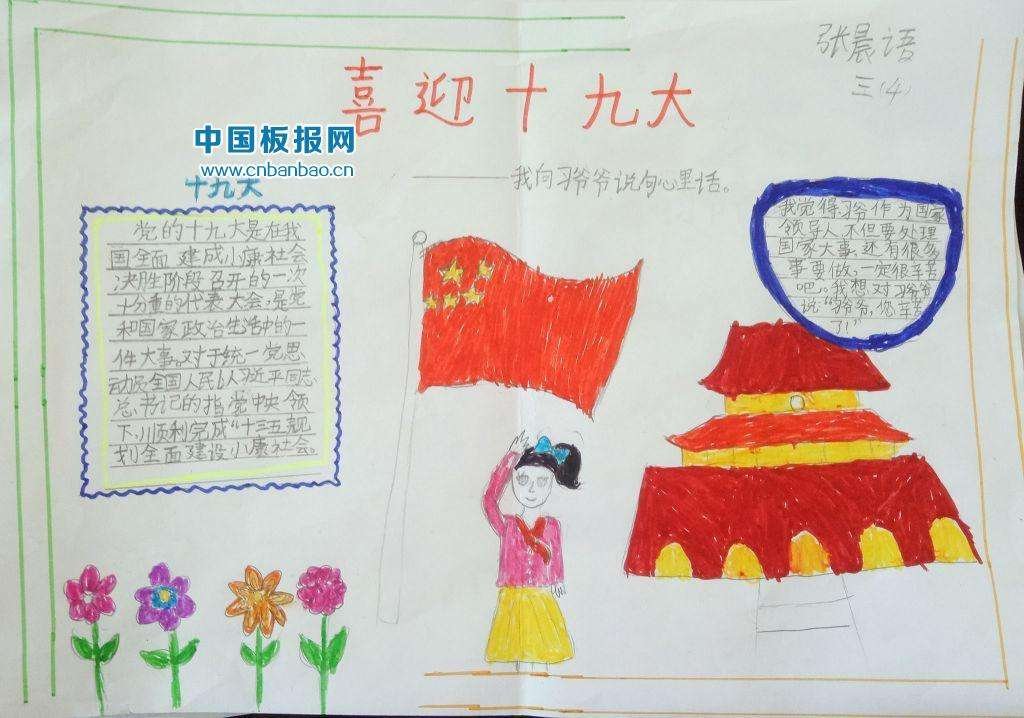 张晨语
三(4)
喜迎十九大
中国板报网
www.cnbanbao.cn
十九大
——我向习爷爷说句心里话。
党的十九大是在我
国全面建成小康社会
决胜阶段召开的一次
十分重的代表大会,是党
和国家政治生活中的一
件大事。对于统一党思
动员全国人民以习近平同志
总书记的指党中央领
下,顺利完成“十三五规
划全面建设小康社会。
我觉得习爷作为国家
领导人,不但要处理
国家大事,还有很多
事要做,一定很辛苦
吧。我想对习爷爷
说“爷爷,您辛苦
了!”